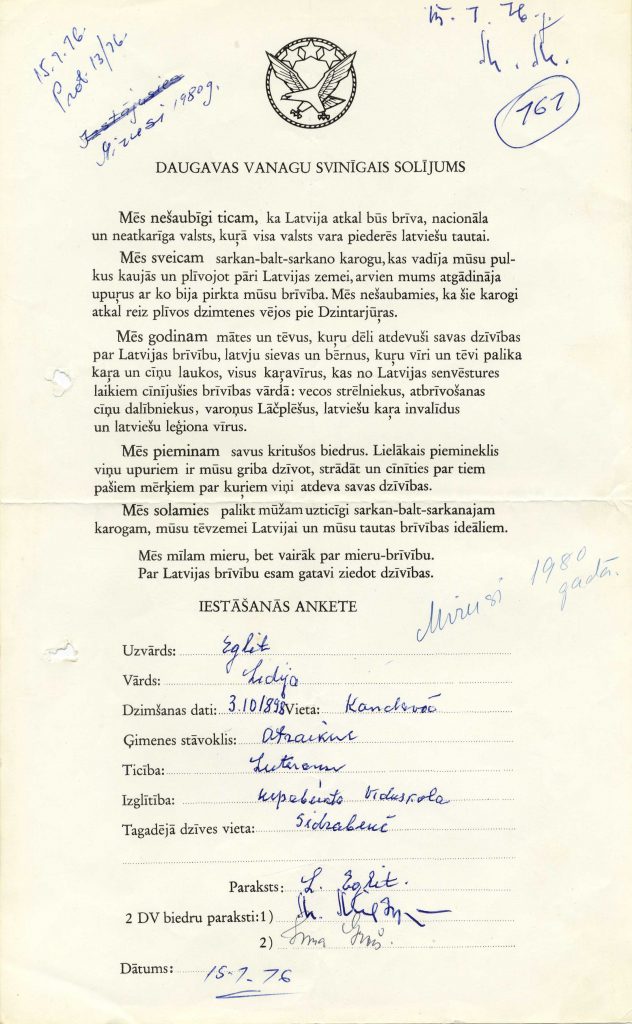 15.7.76.
Prot. 13/76.
Iestājusies
Mirusi 1980 g.
15. 7. 76. g.
161
DAUGAVAS VANAGU SVINĪGAIS SOLĪJUMS
Mēs nešaubīgi ticam, ka Latvija atkal būs brīva, nacionāla
un neatkarīga valsts, kuŗā visa valsts vara piederēs latviešu tautai.
Mēs sveicam sarkan-balt-sarkano karogu, kas vadīja mūsu pul-
kus kaujās un plīvojot pāri Latvijas zemei, arvien mums atgādināja
upuŗus ar ko bija pirkta mūsu brīvība. Mēs nešaubamies, ka šie karogi
atkal reiz plīvos dzimtenes vējos pie Dzintarjūŗas.
Mēs godinam mātes un tēvus, kuŗu dēli atdevuši savas dzīvības
par Latvijas brīvību, latvju sievas un bērnus, kuŗu vīri un tēvi palika
kaŗa un cīņu laukos, visus kaŗavīrus, kas no Latvijas senvēstures
laikiem cīnījušies brīvības vārdā: vecos strēlniekus, atbrīvošanas
cīņu dalībniekus, varoņus Lāčplēšus, latviešu kaŗa invalīdus
un latviešu leģiona vīrus.
Mēs pieminam savus kritušos biedrus. Lielākais piemineklis
viņu upuriem ir mūsu griba dzīvot, strādāt un cīnīties par tiem
pašiem mērķiem par kuŗiem viņi atdeva savas dzīvības.
Mēs solamies palikt mūžam uzticīgi sarkan-balt-sarkanajam
karogam, mūsu tēvzemei Latvijai un mūsu tautas brīvības ideāliem.
Mēs mīlam mieru, bet vairāk par mieru-brīvību.
Par Latvijas brīvību esam gatavi ziedot dzīvības.
Mirusi 1980
gadā.
IESTĀŠANĀS ANKETE
Uzvārds: Eglit
Vārds: Lidija
Dzimšanas dati: 3.10/898 Vieta: Kandavā
Ģimenes stāvoklis: Atraikne
Ticība: Luteran
Izglītība: nepabeigta Viduskola
Tagadējā dzīves vieta: Sidrabenē
Paraksts: L. Eglit.
2 DV biedru paraksti: 1)
2) Irma
Dātums: 15.7.76